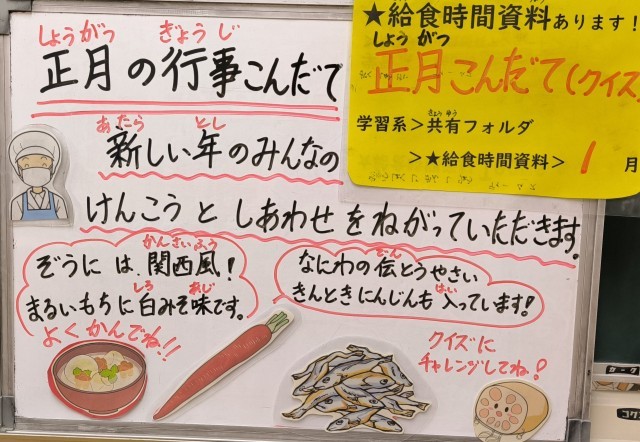 しょうがつ ぎょうじ
正月の行事こんだて
あたら とし
新しい年のみんなの
けんこうとしあわせをねがっていただきます。
かんさいふう
ぞうには、関西風!
しろ あじ
まるいもちに白みそ味です。
よくかんでね!!
でん
なにわの伝とうやさい
はい
きんときにんじんも入っています!
クイズに
チャレンジしてね!
★給食時間資料あります!
しょうがつ
正月こんだて(クイズ
きょうゆう
学習系>共有フォルダ
>★給食時間資料> 1月